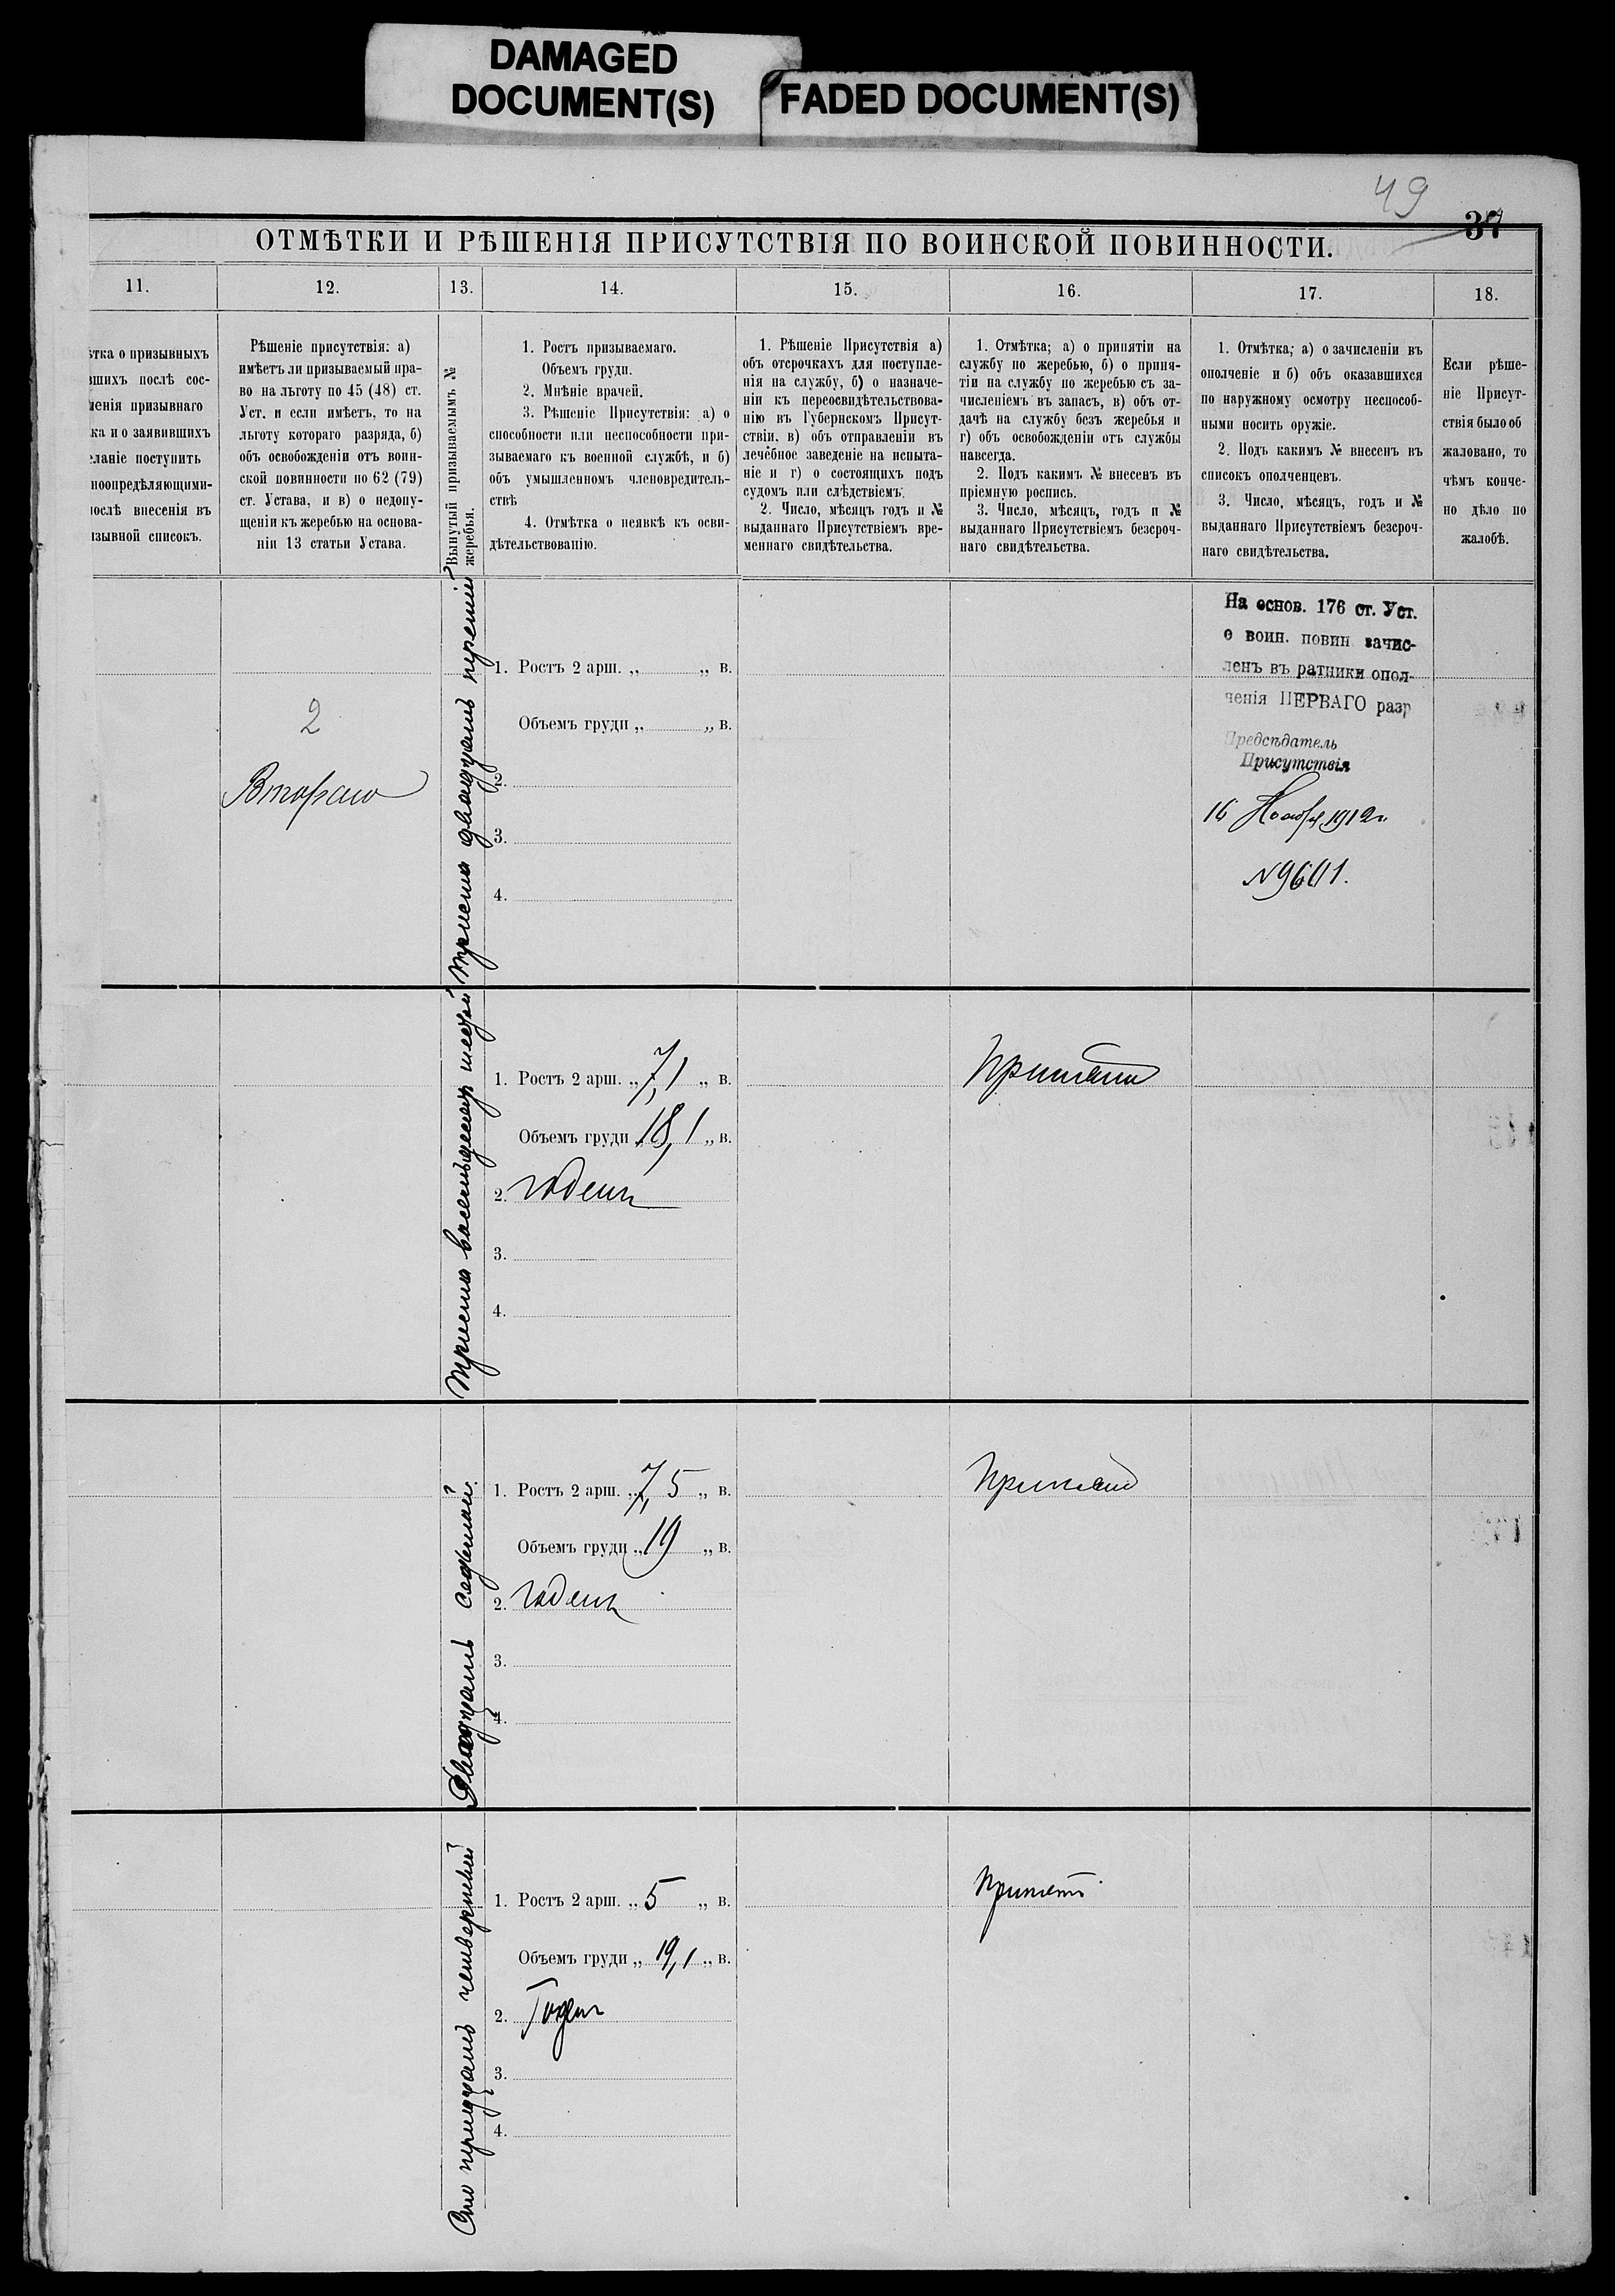 DAMAGED
DOCUMENT(S)
FADED DOCUMENT(S)
49
37
ОТМѢТКИ И РѢШЕНІЯ ПРИСУТСТВІЯ ПО ВОИНСКОЙ ПОВИННОСТИ.
11.
12.
13.
14.
15.
16.
17.
18.
ѣтка о призывныхъ
вшихъ послѣ сос-
ленія призывнаго
ка и о заявившихъ
еланіе поступить
ноопредѣляющими-
послѣ внесенія въ
изывной списокъ.
Рѣшеніе присутствія: а)
имѣетъ ли призываемый пра-
во на льготу по 45 (48) ст.
Уст. и если имѣетъ, то на
льготу котораго разряда, б)
объ освобожденіи отъ воин-
ской повинности по 62 (79)
ст. Устава, и в) о недопу-
щеніи къ жеребью на основа-
ніи 13 статьи Устава.
Вынутый призываемымъ №
жеребья.
1. Ростъ призываемаго.
Объемъ груди.
2. Мнѣніе врачей.
3. Рѣшеніе Присутствія: а) о
способности или неспособности при-
зываемаго къ военной службѣ, и б)
объ умышленномъ членовредитель-
ствѣ
4. Отмѣтка о неявкѣ къ осви-
дѣтельствованію.
1. Рѣшеніе Присутствія а)
объ отсрочкахъ для поступле-
нія на службу, б) о назначе-
ніи къ переосвидѣтельствова-
нію въ Губернскомъ Присут-
ствіи, в) объ отправленіи въ
лечебное заведеніе на испыта-
ніе и г) о состоящихъ подъ
судомъ или слѣдствіемъ.
2. Число, мѣсяцъ годъ и №
выданнаго Присутствіемъ вре-
меннаго свидѣтельства.
1. Отмѣтка; а) о принятіи на
службу по жеребью, б) о приня-
тіи на службу по жеребью съ за-
численіемъ въ запасъ, в) объ от-
дачѣ на службу безъ жеребья и
г) объ освобожденіи отъ службы
навсегда.
2. Подъ какимъ № внесенъ въ
пріемную роспись.
3. Число, мѣсяцъ, годъ и №
выданнаго Присутствіемъ безсроч-
наго свидѣтельства.
1. Отмѣтка; а) о зачисленіи въ
ополченіе и б) объ оказавшихся
по наружному осмотру неспособ-
ными носить оружіе.
2. Подъ какимъ № внесенъ въ
списокъ ополченцевъ.
3. Число, мѣсяцъ, годъ и №
выданнаго Присутствіемъ безсроч-
наго свидѣтельства.
Если рѣше-
ніе Присут-
ствія было об
жаловано, то
чѣмъ конче-
но дѣло по
жалобѣ.
2
Втораго
Триста двадцать третій
1. Ростъ 2 арш. „ „ в.
Объемъ груди „ „ в.
2.
3.
4.
На основ. 176 ст. Уст.
о воин. повин зачис-
ленъ въ ратники опол-
ченія ПЕРВАГО разр
Предсѣдатель
Присутствія
16 Ноября 1912г.
№9601.
Триста восемьдесят шестой
1. Ростъ 2 арш. „ 7,1 „ в.
Объемъ груди 18,1 „ в.
2. годенъ
3.
4.
Принятъ
Двадцать седьмой.
1. Ростъ 2 арш. „ 7,5 „ в.
Объемъ груди „ 19 „ в.
2. годенъ
3.
4.
Принятъ
Сто тридцать четвертый
1. Ростъ 2 арш. „ 5 „ в.
Объемъ груди „ 19,1 „ в.
2. Годен
3.
4.
Принятъ